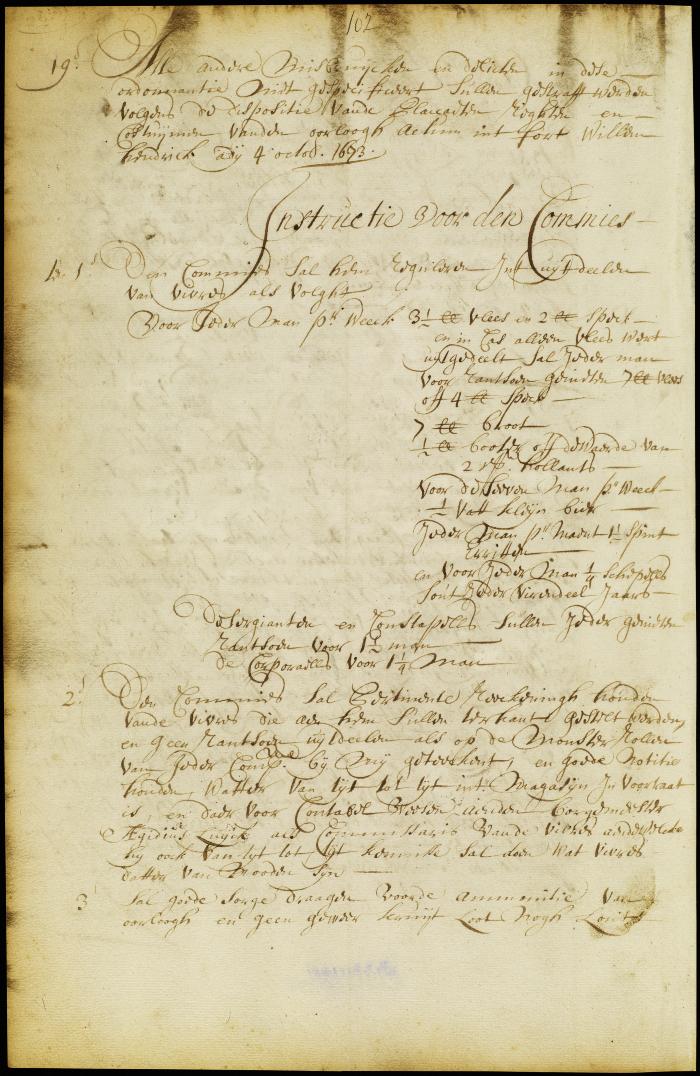 102
19. Alle andere Misbruycken en delicten in dese
ordonnantie Niet gespecificeert Sullen gestraft werden
volgens de dispositie vande Placcaten Reghten en
Costuijmen vanden oorloogh Actum int fort Willem
hendrick adij 4 octob. 1673.
Instructie Voor den Commies
1. Den Commies Sal hem Reguleren Int uytdeelen
van vivres als volght
Voor Jeder Man pr. Weeck 3½ lb vlees en 2 lb speck
en in Cas alleen vlees wert
uytgedeelt Sal Jeder man
voor Rantsoen genieten 7 lb vlees
off 4 lb speck
7 lb broot
½ lb booter off de waerde van
2 hollants
voor de Seeven Man pr. Weeck
½ Vatt kleijn bier
Jeder Man pr. Maent 1½ Spint
Erritten
en voor Jeder Man ¼ Schepels
Sout Jeder vierendeel Jaars
De Sergianten en Constapells Sullen Jeder genieten
Rantsoen voor 1½ man
de Corporaells voor 1¼ Man
2. Den Commies Sal Pertinente Reeckeningh houden
vande vivres die aen hem Sullen ter hant gestelt werden,
en geen Rantsoen uytdeelen als op de Monster Rollen
van Jeder Compe. by Mij geteeckent, en goede Notitie
houden, Watter van tyt tot tyt int Magasijn In voorraat
is en daer voor Contabel Weesen aenden borgemeester
Ægidius Luyck als Commissaris Vande vivres aen dewelcke
hy ook van tyt tot tyt kennisse Sal doen Wat vivres
datter van Nooden Syn
3 Sal goede Sorge draagen Voorde Ammunitie van
oorloogh en geen geweer kruijt Loot Nogh Lonte